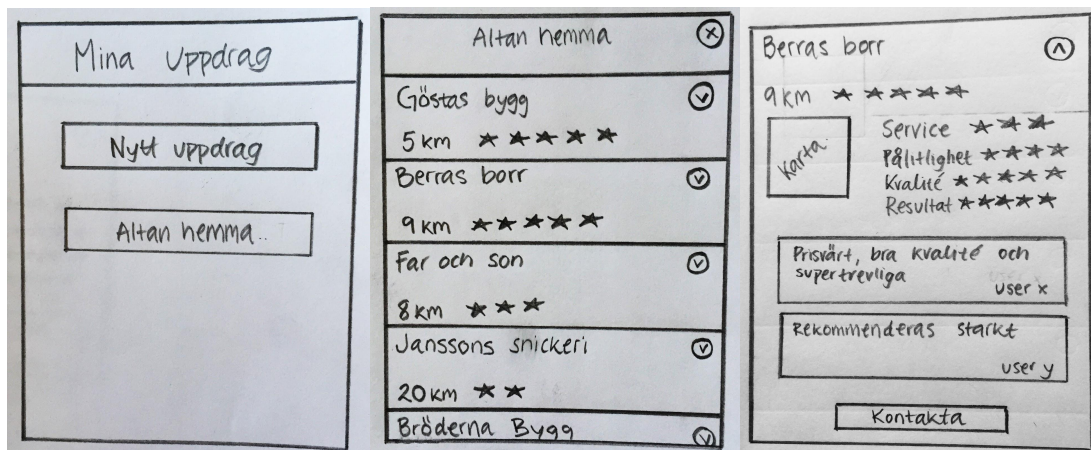 Mina uppdrag
Nytt uppdrag
Altan hemma..
Altan hemma
Göstas bygg
5 km ★★★★★
Berras borr
9 km ★★★★★
Far och son
8 km ★★★
Janssons snickeri
20 km ★★
Bröderna Bygg
Berras borr
9 km ★★★★★
Karta
Service ★★★
Pålitlighet ★★★★
Kvalité ★★★★★
Resultat ★★★★★
Prisvärt, bra kvalité och
supertrevliga
user x
Rekommenderas starkt
user y
Kontakta